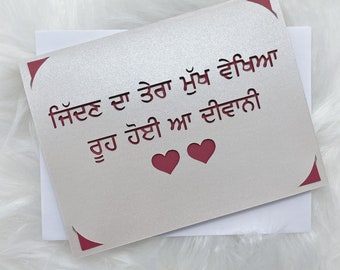 ਜਿੱਦਣ ਦਾ ਤੇਰਾ ਮੁੱਖ ਵੇਖਿਆ
ਰੂਹ ਹੋਈ ਆ ਦੀਵਾਨੀ